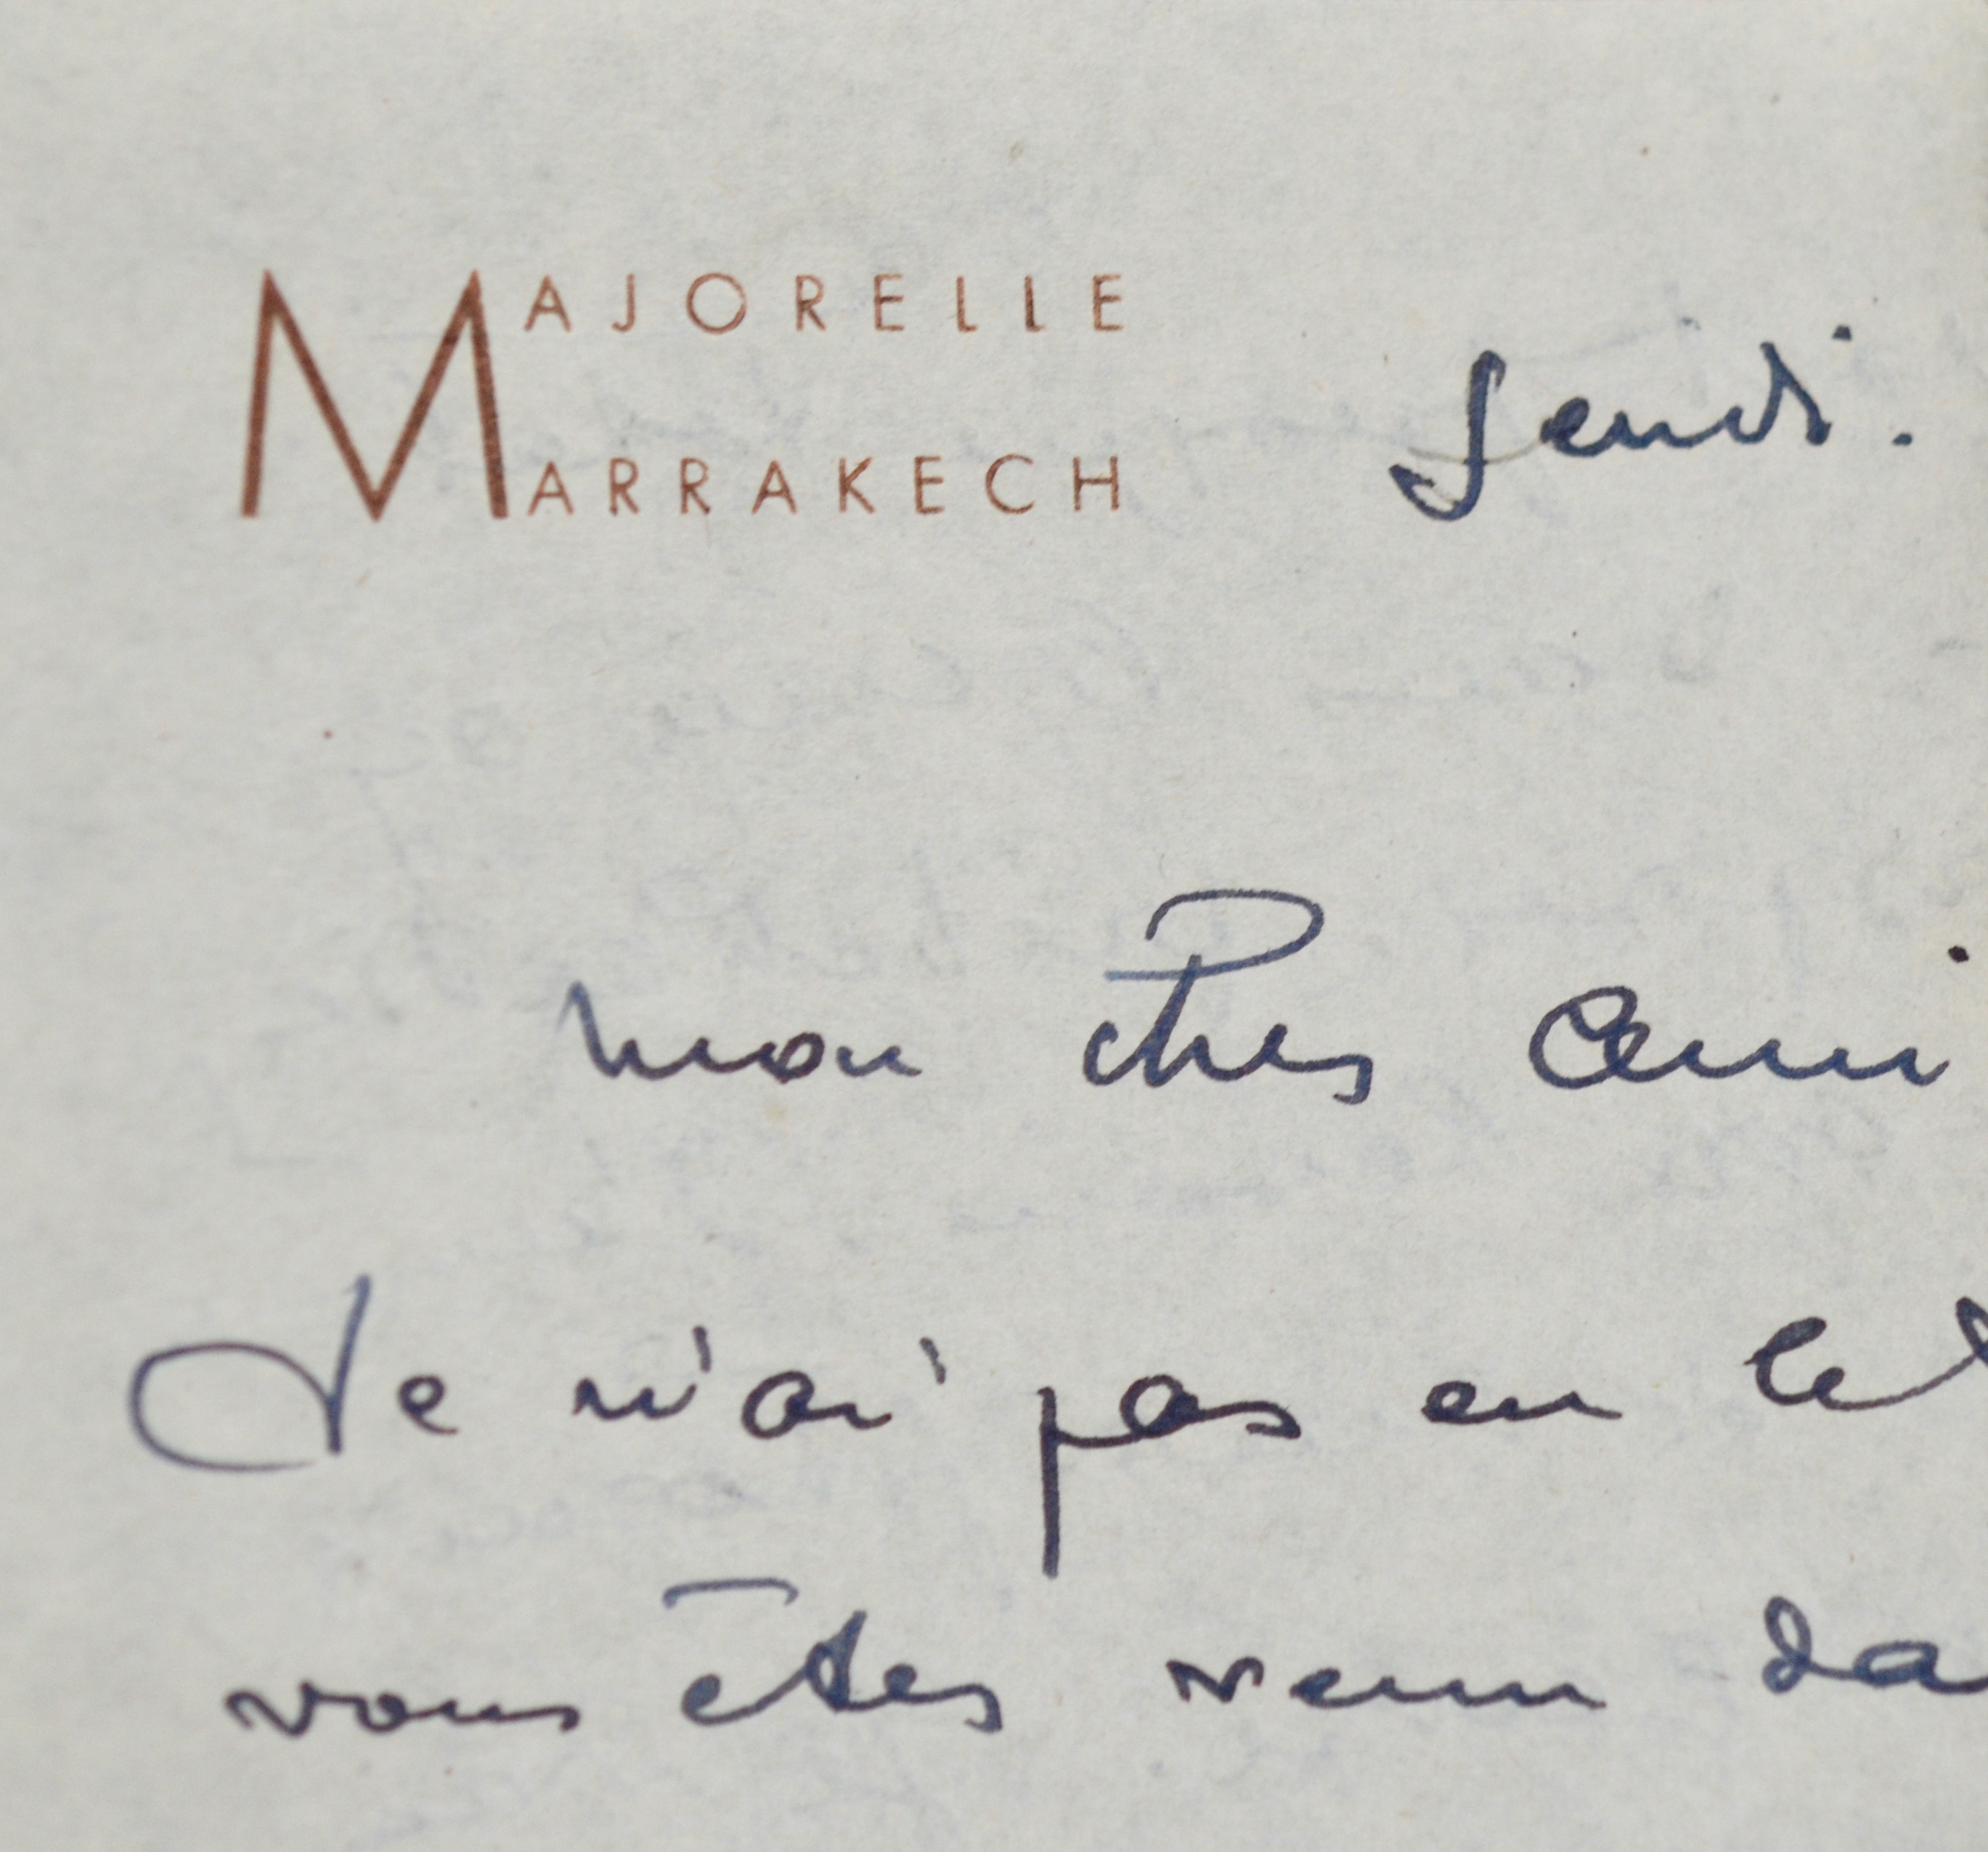 MAJORELLE
MARRAKECH
Jeudi.
Mon cher Ami
Je n'ai pas eu let
vous êtes venu da